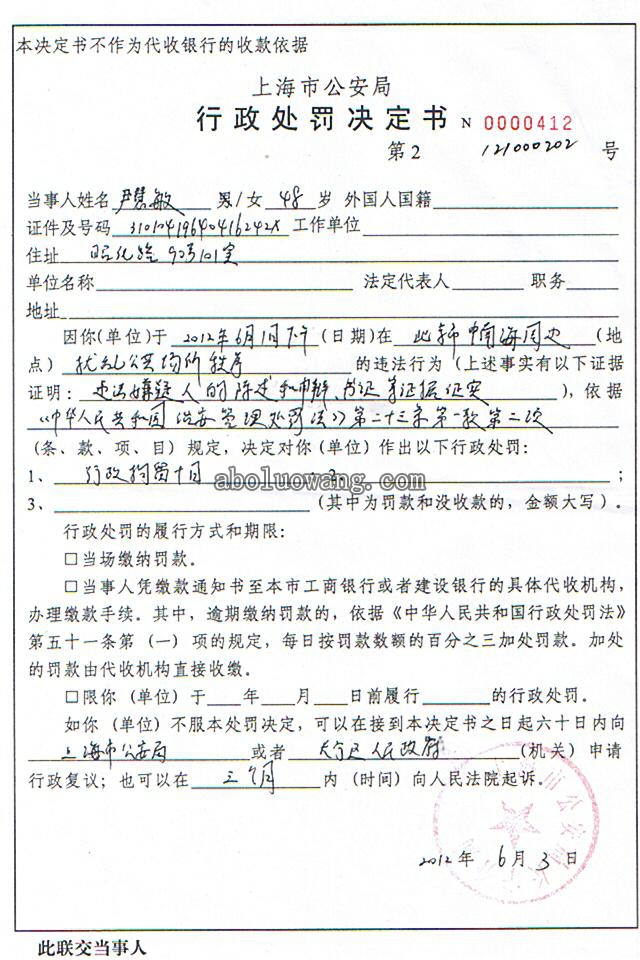 本决定书不作为代收银行的收款依据
上海市公安局
行政处罚决定书 N 0000412
第2 121000202 号
当事人姓名 尹慧敏 男/女 48 岁 外国人国籍
证件及号码 31010419640416242X 工作单位
住址 昭化路90弄101室
单位名称 法定代表人 职务
地址
因你(单位)于 2012年6月1日下午 (日期)在 北京市中南海周边 (地
点) 扰乱公共场所秩序 的违法行为(上述事实有以下证据
证明: 违法嫌疑人的陈述和申辩、书证等证据证实 ),依据
《中华人民共和国治安管理处罚法》第二十三条第一款第二项
(条、款、项、目)规定,决定对你(单位)作出以下行政处罚:
1、 行政拘留十日 2、 ;
aboluowang.com
3、 (其中为罚款和没收款的,金额大写)。
行政处罚的履行方式和期限:
□当场缴纳罚款。
□当事人凭缴款通知书至本市工商银行或者建设银行的具体代收机构,
办理缴款手续。其中,逾期缴纳罚款的,依据《中华人民共和国行政处罚法》
第五十一条第(一)项的规定,每日按罚款数额的百分之三加处罚款。加处
的罚款由代收机构直接收缴。
□限你(单位)于 年 月 日前履行 的行政处罚。
如你(单位)不服本处罚决定,可以在接到本决定书之日起六十日内向
上海市公安局 或者 长宁区人民政府 (机关)申请
行政复议;也可以在 三个月 内(时间)向人民法院起诉。
2012 年 6 月 3 日
此联交当事人